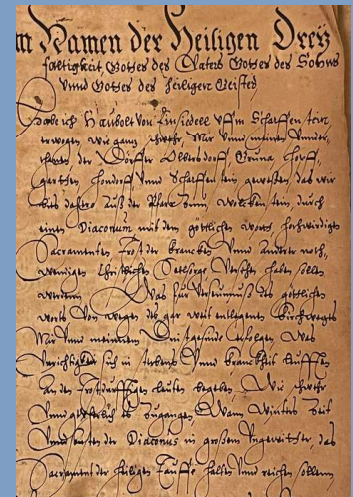 m Namen der Heiligen Drey
faltigkeit Gottes des Vaters Gottes des Sohns
Vnnd Gottes des heiligen Geistes
Habe ich Haubolt von Einsiedell vffm Scharffenstein
erwogen, wie ganz schwehr, Mir vnnd meinen Vnder-
thanen der Dörffer Olberßdorff, Grüna, Hopff-
garthen, vnnd Scharffenstein, gewesen, das wir
bis dahero Auß der Pfarr Zum, Wolckenstein, durch
einen Diaconum mit dem göttlichen wort, hochwirdigen
Sacramenten, Trost der krancken Vnnd anderer noth-
wendigen Christlichen Seelsorge Versehen haben sollen
werden, Was für Verseumnuß des göttlichen
worts Von wegen des gar weit entlegenen Kirchweges
Mir Vnnd meinem Hoffgesinde erfolget, Was
sich in sterbens Vnnd kranckheit leufften
an den leuten begeben, Wie schwehr
Vnnd gefehrlich es Zugangen, Wann Winters Zeit
Vnnd sonsten der Diaconus in großem Vngewitter, das
Sacrament der heiligen Tauffe halten Vnnd reichen sollenn